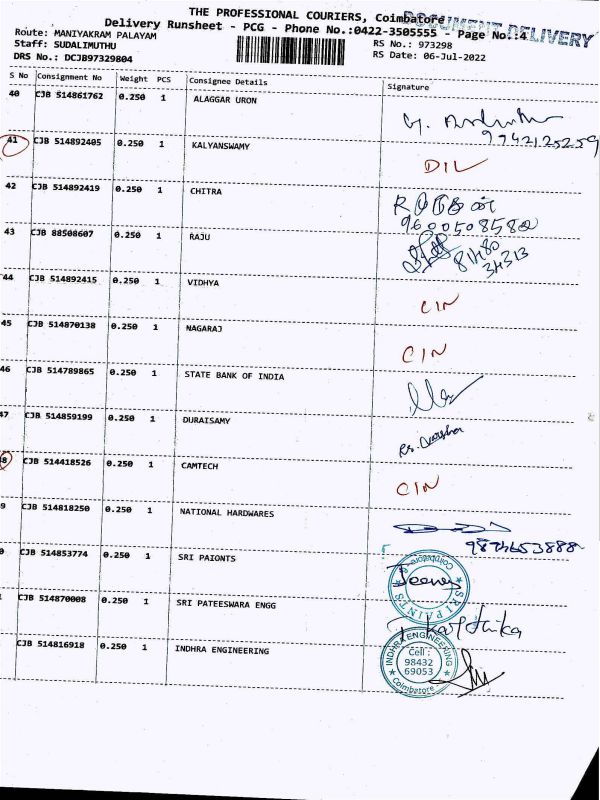 THE PROFESSIONAL COURIERS, Coimbatore
DOCUMENT DELIVERY
Delivery Runsheet - PCG - Phone No.:0422-3505555 - Page No.:4
Route: MANIYAKRAM PALAYAM
RS No.: 973298
Staff: SUDALIMUTHU
RS Date: 06-Jul-2022
DRS No.: DCJB97329804
S No Consignment No Weight PCS Consignee Details Signature
40 CJB 514861762 0.250 1 ALAGGAR URON
9942125259
41 CJB 514892405 0.250 1 KALYANSWAMY DIL
42 CJB 514892419 0.250 1 CHITRA
9600508580
43 CJB 88508607 0.250 1 RAJU
81480
34313
44 CJB 514892415 0.250 1 VIDHYA CIN
45 CJB 514870138 0.250 1 NAGARAJ CIN
46 CJB 514789865 0.250 1 STATE BANK OF INDIA
47 CJB 514859199 0.250 1 DURAISAMY
8 CJB 514418526 0.250 1 CAMTECH CIN
9 CJB 514818250 0.250 1 NATIONAL HARDWARES
0 CJB 514853774 0.250 1 SRI PAIONTS
SRI PAINTS
Coimbatore
CJB 514870008 0.250 1 SRI PATEESWARA ENGG
CJB 514816918 0.250 1 INDHRA ENGINEERING
INDHRA ENGINEERING
Cell :
98432
69053
Coimbatore